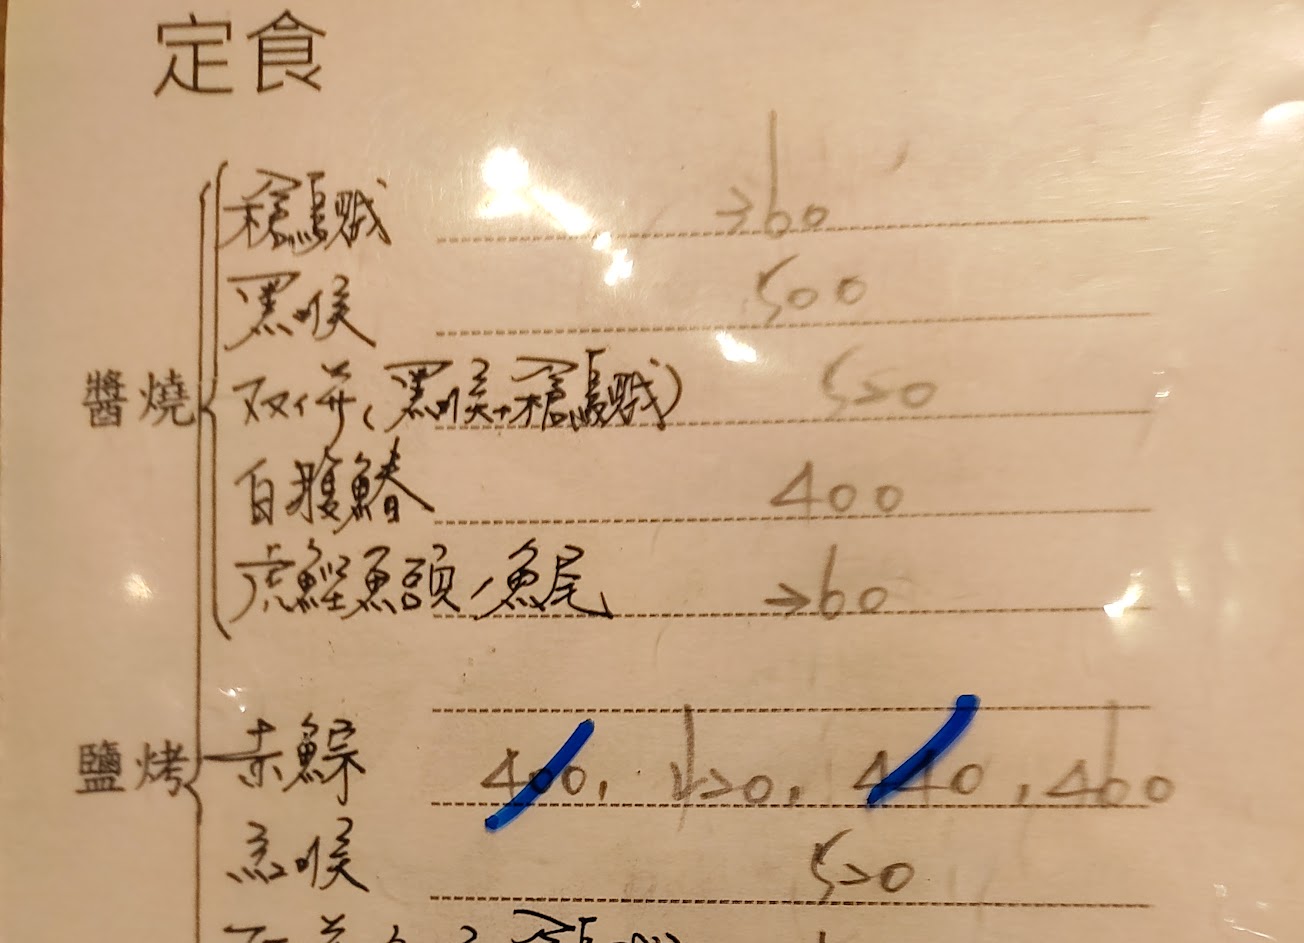 定食
醬燒
槍烏賊 360
黑喉 500
双併(黑喉+槍烏賊) 520
白腹鰆 400
虎鰹魚頭/魚尾 360
鹽烤
赤鯮 400, 420, 440, 460
黑喉 520